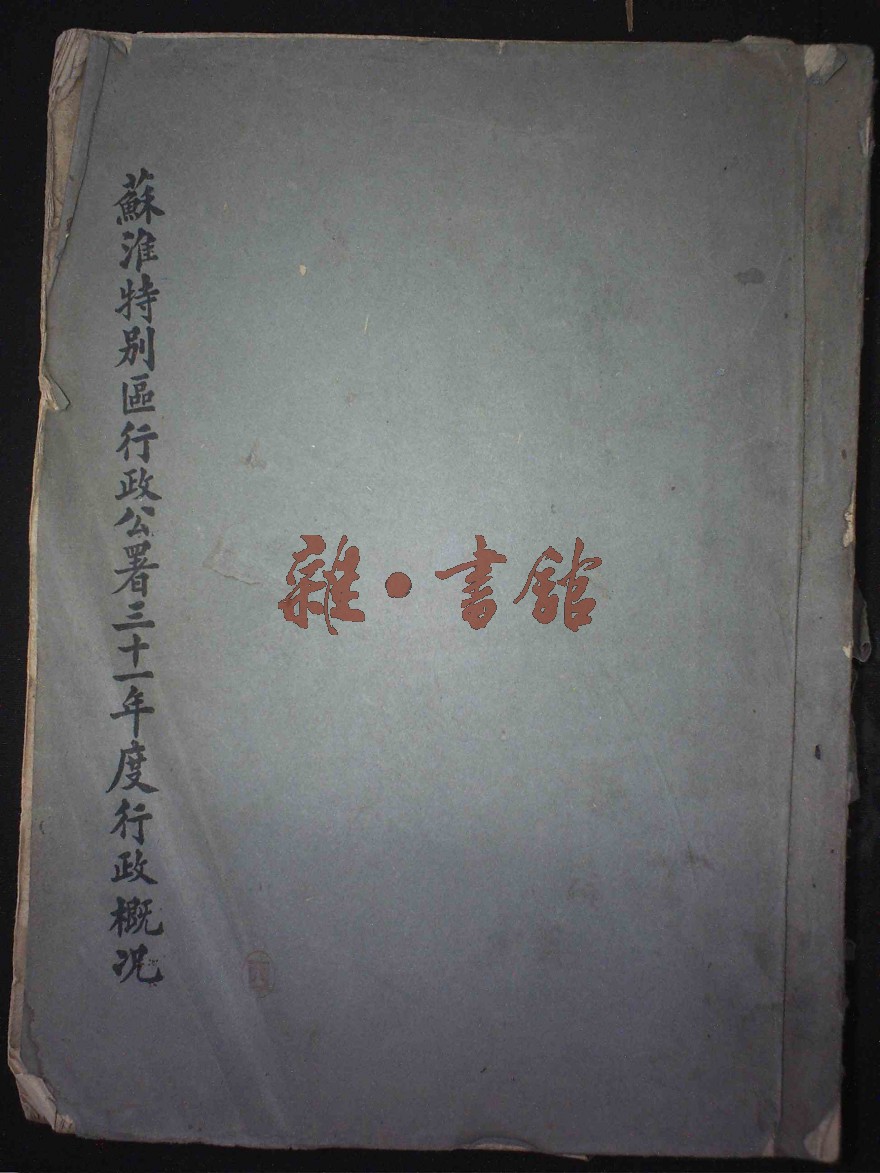 蘇淮特别區行政公署三十一年度行政概况
雜·書館